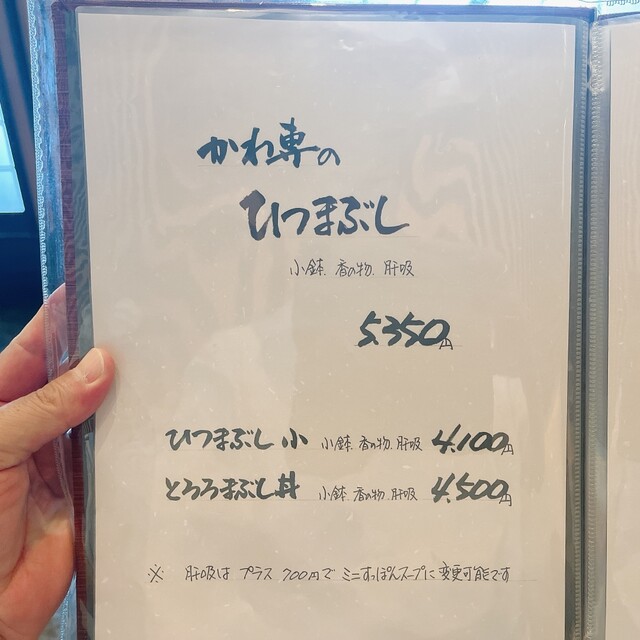 かね専の
ひつまぶし
小鉢、香の物、肝吸
5,350円
ひつまぶし 小 小鉢、香の物、肝吸 4,100円
とろろまぶし丼 小鉢、香の物、肝吸 4,500円
※ 肝吸は プラス 700円で ミニすっぽんスープに変更可能です